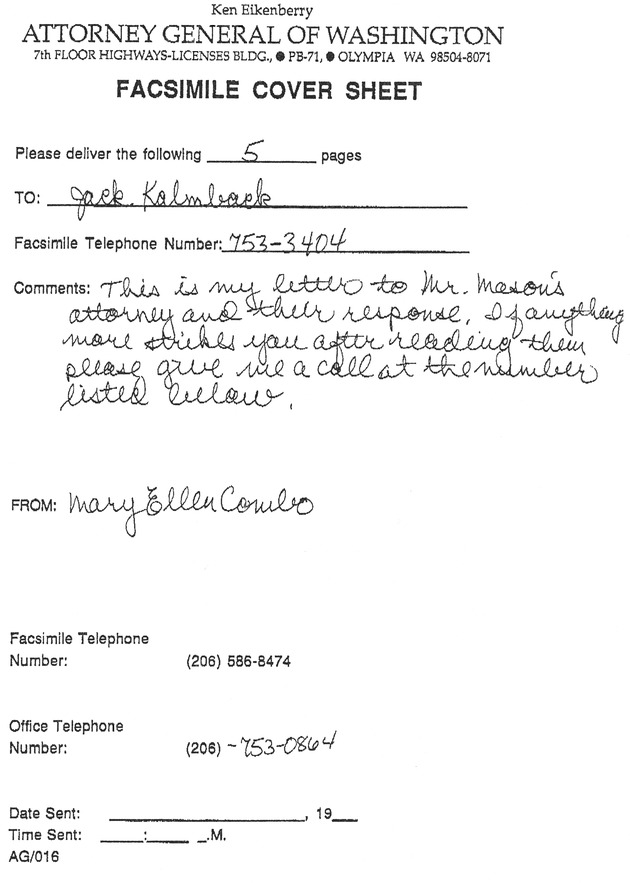 Ken Eikenberry
ATTORNEY GENERAL OF WASHINGTON
7th FLOOR HIGHWAYS-LICENSES BLDG., ● PB-71, ● OLYMPIA WA 98504-8071
FACSIMILE COVER SHEET
Please deliver the following 5 pages
TO: Jack Kalmback
Facsimile Telephone Number: 753-3404
Comments: This is my letter to Mr. Mason's
attorney and their response. If anything
more strikes you after reading them
please give me a call at the number
listed bellow.
FROM: Mary Ellen Combo
Facsimile Telephone
Number: (206) 586-8474
Office Telephone
Number: (206) -753-0864
Date Sent: ____________________, 19___
Time Sent: _____:_____ _.M.
AG/016